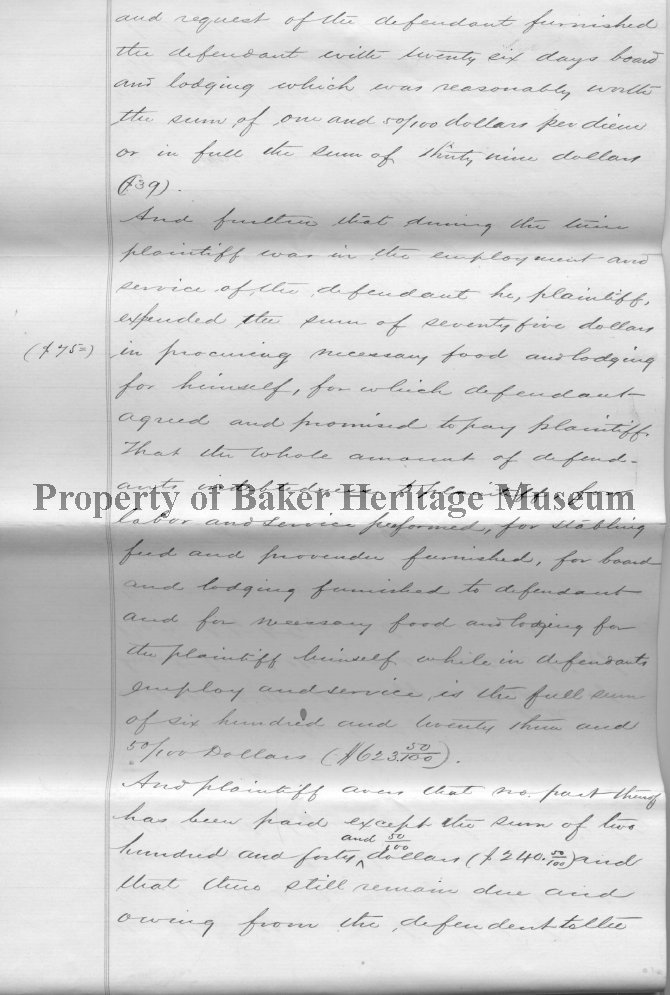 and request of the defendant furnished
the defendant with twenty six days board
and lodging which was reasonably worth
the sum of one and 50/100 dollars per diem
or in full the sum of thirty nine dollars
($39).
And further that during the time
plaintiff was in the employment and
service of the defendant he, plaintiff,
expended the sum of seventy five dollars
($75=)
in procuring necessary food and lodging
for himself, for which defendant
agreed and promised to pay plaintiff.
That the whole amount of defend-
ants indebtedness to plaintiff for
Property of Baker Heritage Museum
labor and service performed, for stabling
feed and provender furnished, for board
and lodging furnished to defendant
and for necessary food and lodging for
the plaintiff himself while in defendants
employ and service, is the full sum
of six hundred and twenty three and
50/100 Dollars ($623.50/100).
And plaintiff avers that no part thereof
has been paid except the sum of two
hundred and forty and 50/100 dollars ($240.50/100) and
that there still remain due and
owing from the defendent to the